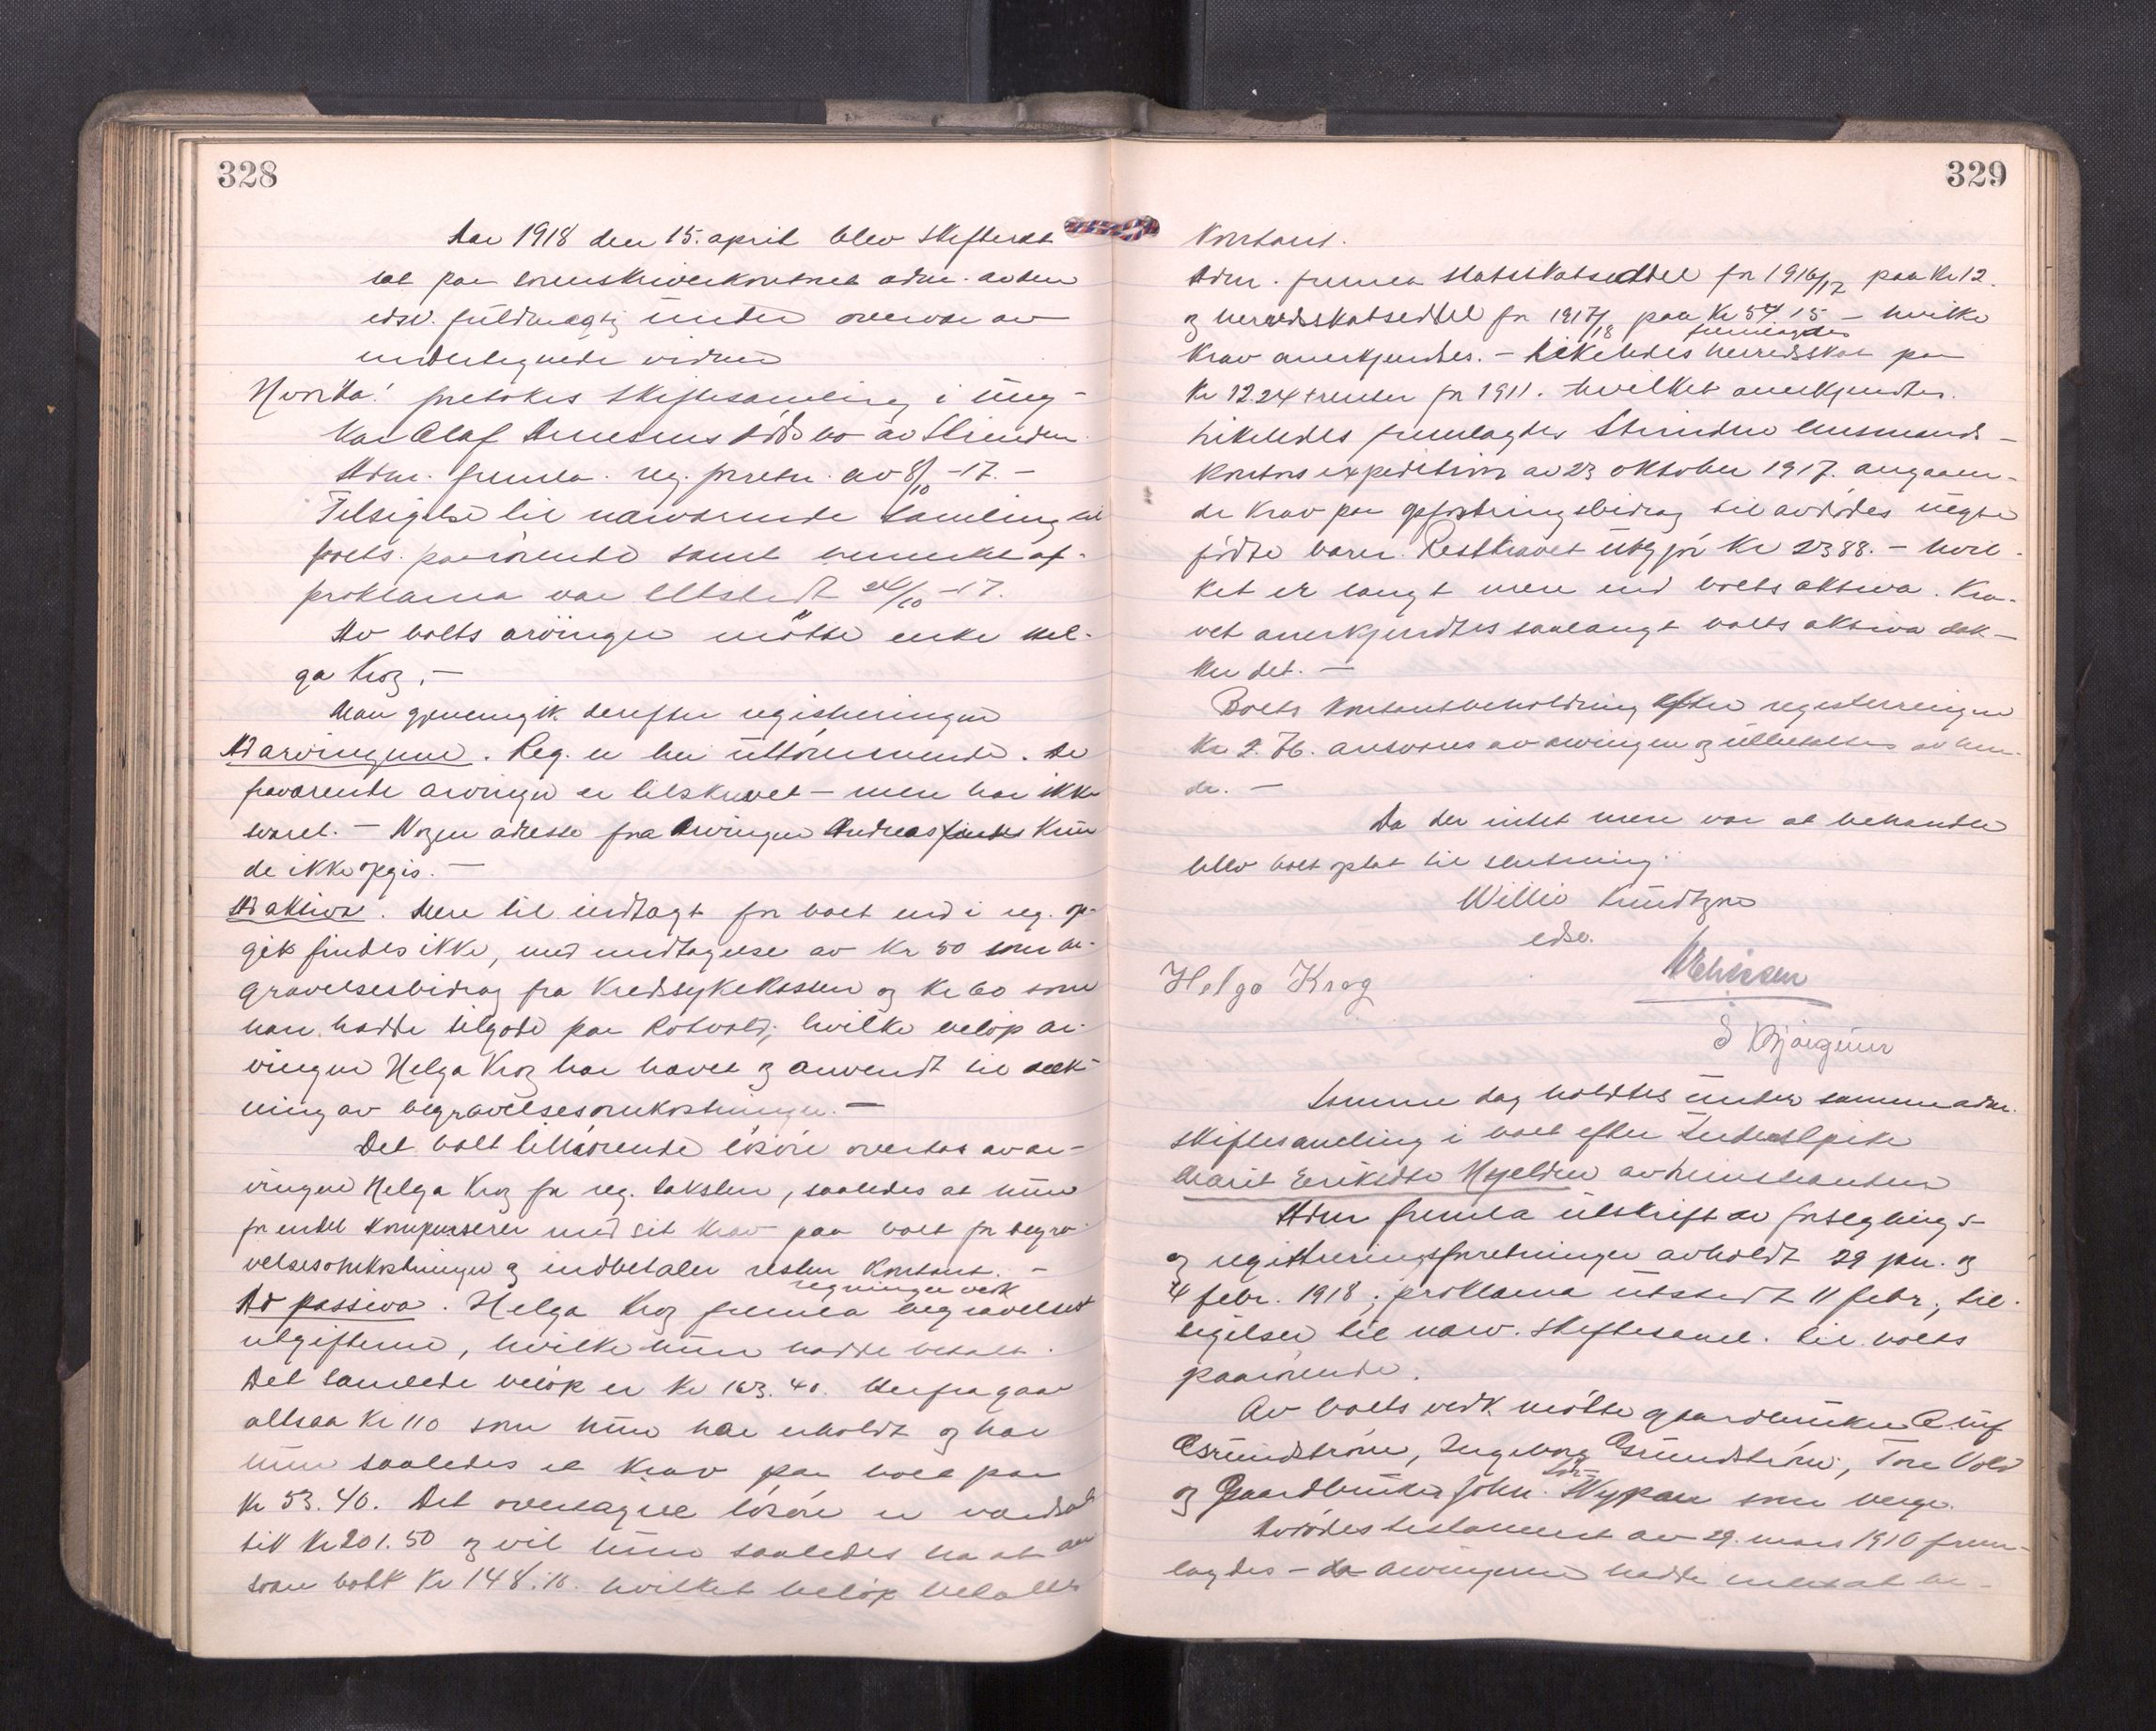 328
Aar 1918 den 15. april blev skifteret
sat paa sorenskriverkontoret adm. av den
edsv. fuldmægtig under overvær av
undertegnede vidner
Hvorda! foretokes skiftesamling i ung-
kar Olaf dødsbo av Strinden.
Adm. fremla reg. forretn. av 8/10 - 17. -
Tilsigelse til nærværende samling til
boets paarørende samt av
proklama var utstedt 24/10 - 17.
Av boets arvinger møtte enke Hel-
ga Krog. -
Man gjennemgik derefter registreringen
Ad arvingerne. Reg. er her uttømmende. De
fraværende arvinger er tilskrevet - men har ikke
svaret. - Nogen adresse fra Arvingen Andreas kun
de ikke opgis. -
Ad aktiva. Mere til indtægt for boet end i reg. op-
git findes ikke, med undtagelse av Kr 50 som be-
gravelsesbidrag fra Kredssykekassen og Kr 60 som
han hadde tilgode paa Rotvold; hvilke beløp ar-
vingen Helga Krog har hævet og anvendt til dæk-
ning av begravelsesomkostninger. -
Det boet tilhørende løsøre overtas av ar-
vingen Helga Krog for reg. taksten, saaledes at hun
for endel kompenserer med sit krav paa boet for begra-
velsesomkostninger og indbetaler resten kontant. -
regninger vedk
Ad passiva. Helga Krog fremla begravelses
utgifterne, hvilke hun hadde betalt.
Det samlede beløp er Kr 163.40. Herfra gaar
altsaa Kr 110 som hun har erholdt og har
hun saaledes et krav paa boet paa
Kr 53.40. Det overtagne løsøre er værdsat
til Kr 201.50 og vil hun saaledes ha at an
svare boet Kr 148.10. hvilket beløp betaltes
329
kontant.
Adm. fremla statsskatseddel for 1916/17 paa Kr 12.
og herredsskatseddel for 1917/18 paa Kr 54.15 - hvilke
fremlagdes
krav anerkjendtes. - Likeledes herredsskat paa
Kr 12.24 + renter for 1911. hvilket anerkjendtes.
Likeledes fremlagdes Strinden lensmands-
kontors expedition av 23 oktober 1917. angaaen-
de krav paa opfostringsbidrag til avdødes uegte
fødte barn. Restkravet utgjør Kr 2388. - hvil-
ket er langt mere end boets aktiva. Kra-
vet anerkjendtes saalangt boets aktiva dæk-
ker det. -
Boets kontantbeholdning efter registreringen
Kr 2.76. ansvares av arvingen og utbetaltes av hen-
de. -
Da der intet mere var at behandle
blev boet optat til slutning.
Willie Kundtzon
edsv.
Helga Krog
S Bjørgum
Samme dag holdtes under samme adm.
skiftesamling i boet efter
Marit Eriksdtr Hyelden av Leinstranden
Adm fremla utskrift av forseglings-
og registreringsforretninger avholdt 29 jan. og
4 febr. 1918; proklama utstedt 11 febr; til-
sigelser til nærv. skiftesaml. til boets
paarørende.
Av boets vedk. møtte gaardbruker Oluf
Øsrundstrøm, Ingeborg Øsrundstrøm, Tore Vold
og Gaardbruker John Nypan som verge.
Avdødes testament av 29. mars 1910 frem-
lagdes - da arvingerne hadde intet at be-